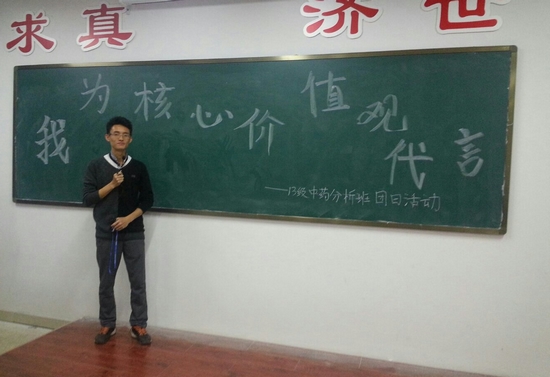 求真 济世
我为核心价值观代言
——13级中药分析班团日活动